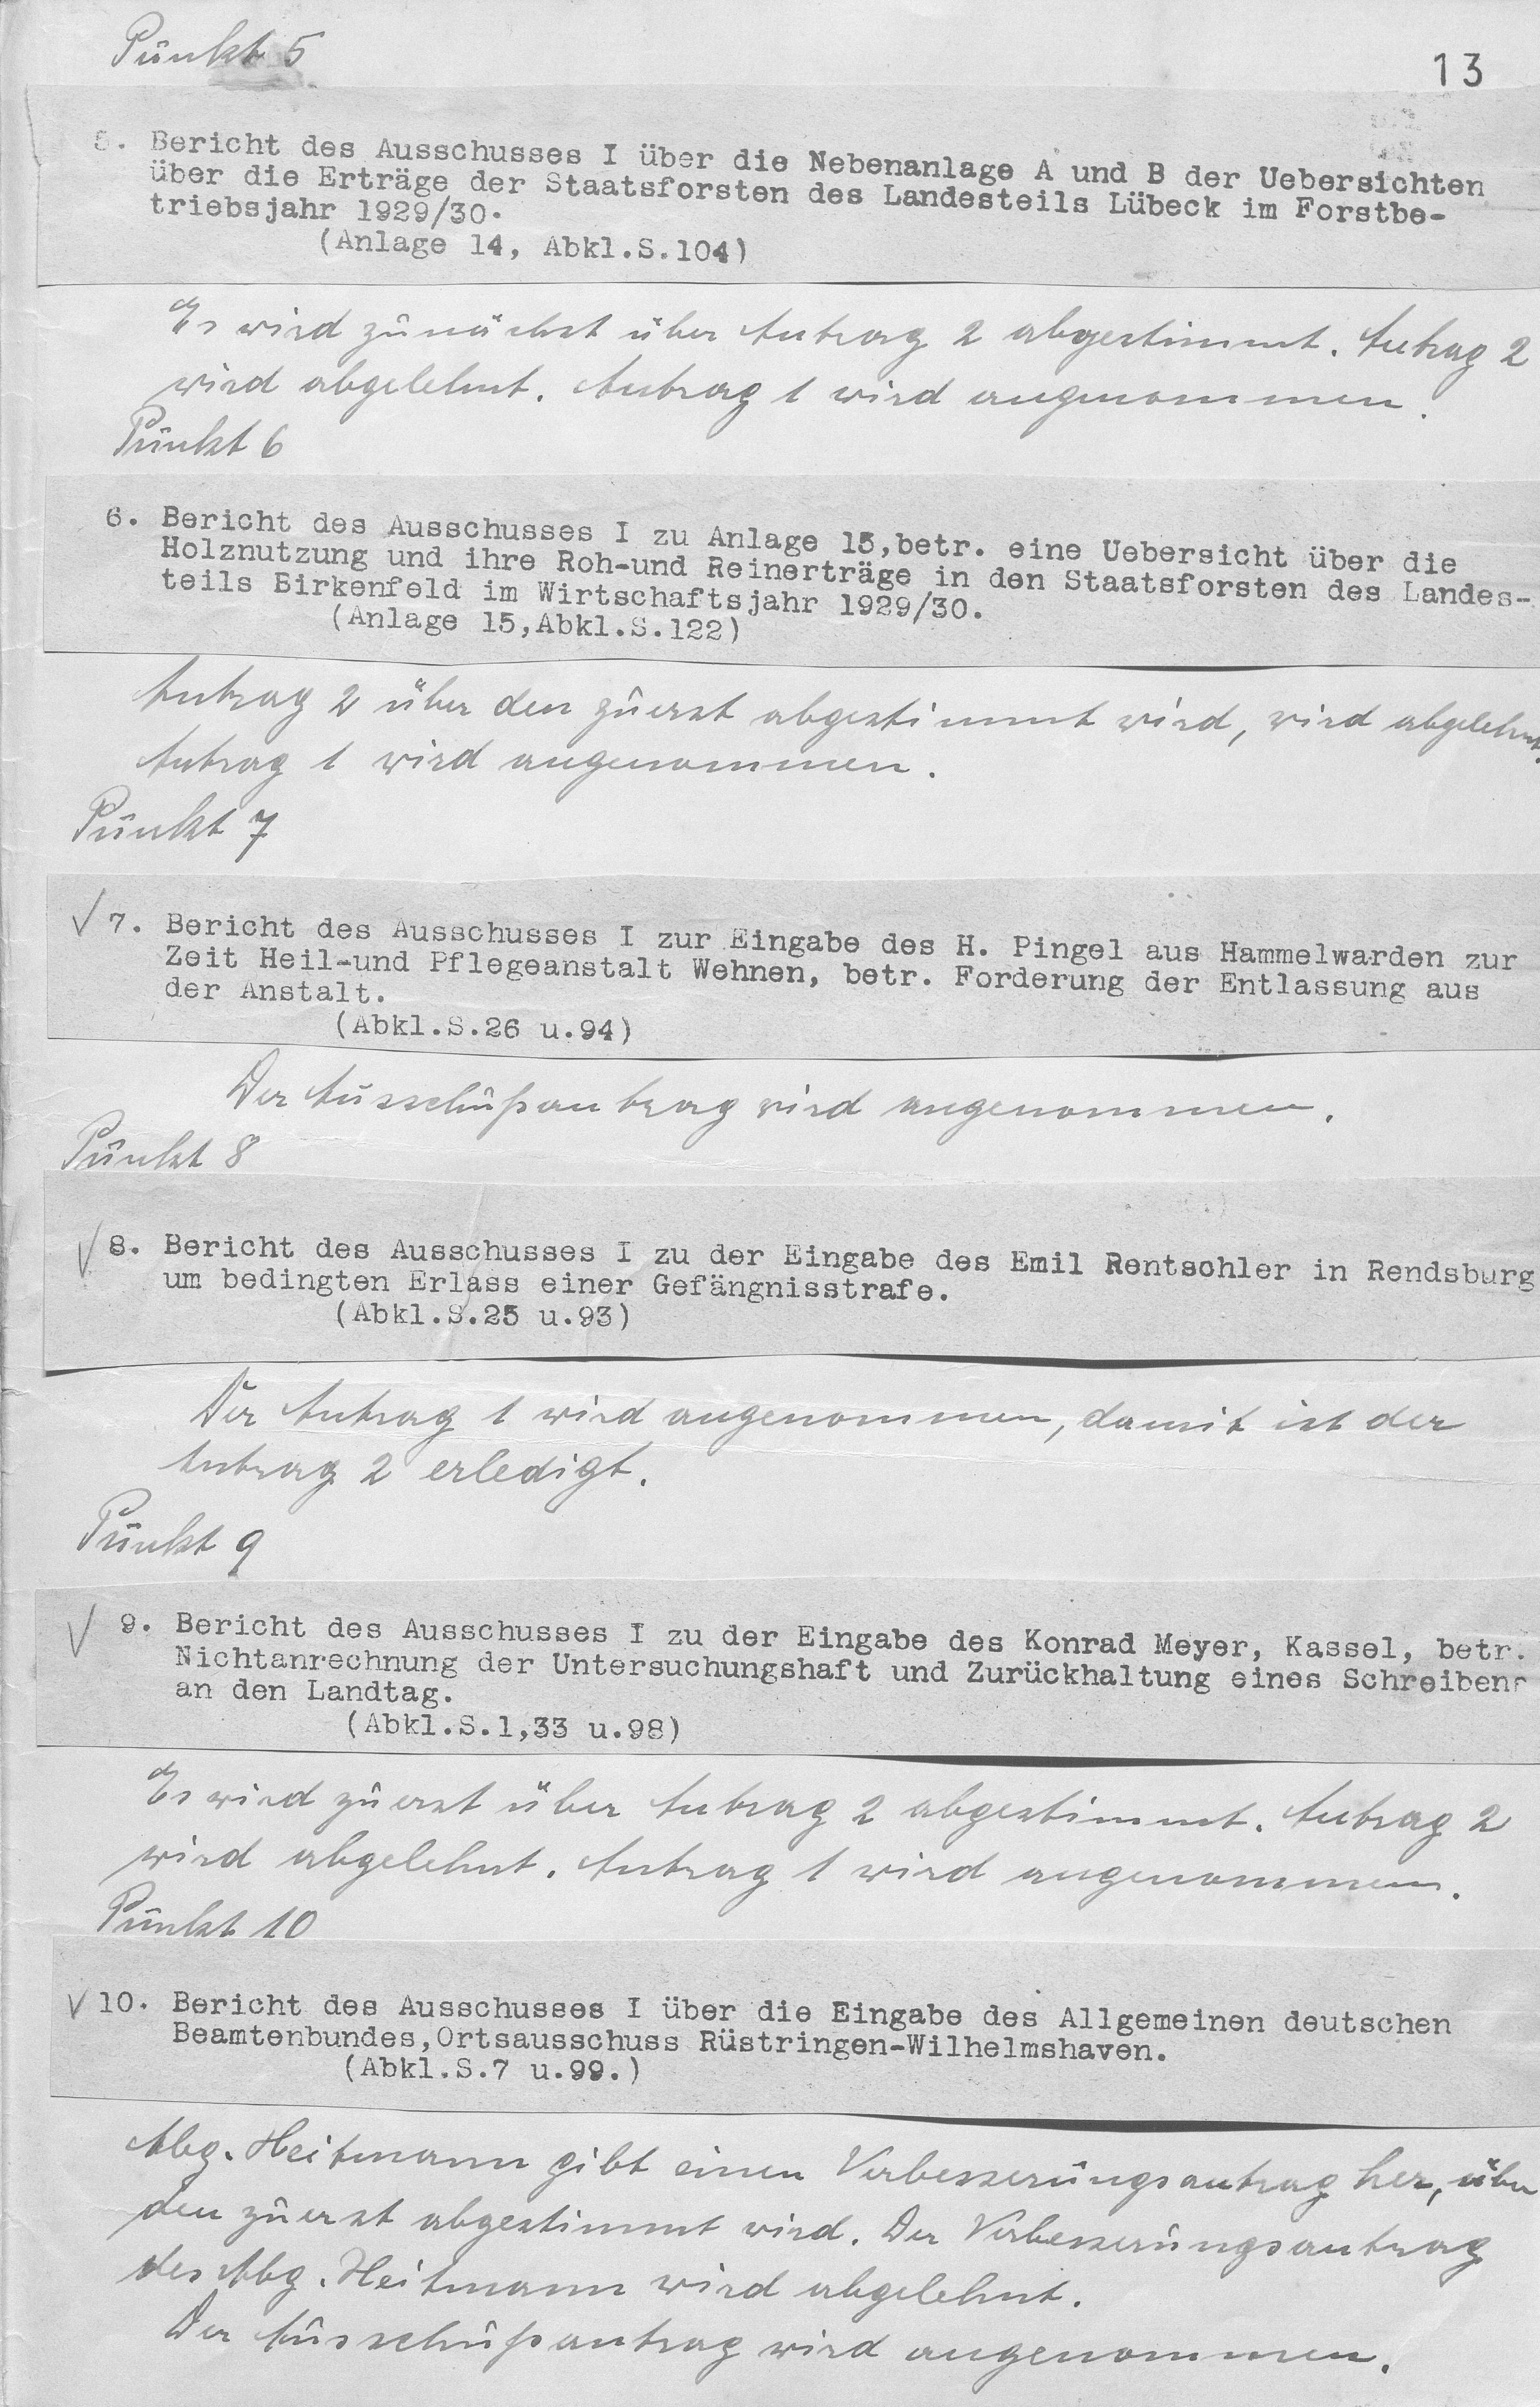 Punkt 5
13
5. Bericht des Ausschusses I über die Nebenanlage A und B der Uebersichten
über die Erträge der Staatsforsten des Landesteils Lübeck im Forstbe-
triebsjahr 1929/30.
(Anlage 14, Abkl.S.104)
Es wird zunächst über Antrag 2 abgestimmt. Antrag 2
wird abgelehnt. Antrag 1 wird angenommen.
Punkt 6
6. Bericht des Ausschusses I zu Anlage 15,betr. eine Uebersicht über die
Holznutzung und ihre Roh-und Reinerträge in den Staatsforsten des Landes-
teils Birkenfeld im Wirtschaftsjahr 1929/30.
(Anlage 15,Abkl.S.122)
Antrag 2 über den zuerst abgestimmt wird, wird abgelehnt.
Antrag 1 wird angenommen.
Punkt 7
✓ 7. Bericht des Ausschusses I zur Eingabe des H. Pingel aus Hammelwarden zur
Zeit Heil-und Pflegeanstalt Wehnen, betr. Forderung der Entlassung aus
der Anstalt.
(Abkl.S.26 u.94)
Der Ausschußantrag wird angenommen.
Punkt 8
✓ 8. Bericht des Ausschusses I zu der Eingabe des Emil Rentschler in Rendsburg
um bedingten Erlass einer Gefängnisstrafe.
(Abkl.S.25 u.93)
Der Antrag 1 wird angenommen, damit ist der
Antrag 2 erledigt.
Punkt 9
✓ 9. Bericht des Ausschusses I zu der Eingabe des Konrad Meyer, Kassel, betr.
Nichtanrechnung der Untersuchungshaft und Zurückhaltung eines Schreibens
an den Landtag.
(Abkl.S.1,33 u.98)
Es wird zuerst über Antrag 2 abgestimmt. Antrag 2
wird abgelehnt. Antrag 1 wird angenommen.
Punkt 10
✓ 10. Bericht des Ausschusses I über die Eingabe des Allgemeinen deutschen
Beamtenbundes,Ortsausschuss Rüstringen-Wilhelmshaven.
(Abkl.S.7 u.99.)
Abg. Heitmann gibt einen Verbesserungsantrag her, über
den zuerst abgestimmt wird. Der Verbesserungsantrag
des Abg. Heitmann wird abgelehnt.
Der Ausschußantrag wird angenommen.